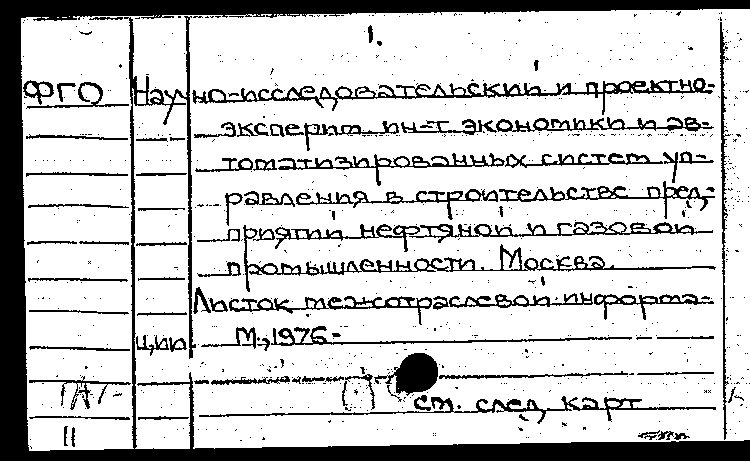 1.
ФГО Научно-исследовательский и проектно-
эксперим. ин-т экономики и ав-
томатизированных систем уп-
равления в строительстве пред-
приятий нефтяной и газовой
промышленности. Москва.
Листок межотраслевой информа-
ции М., 1976-
см. след. карт
11